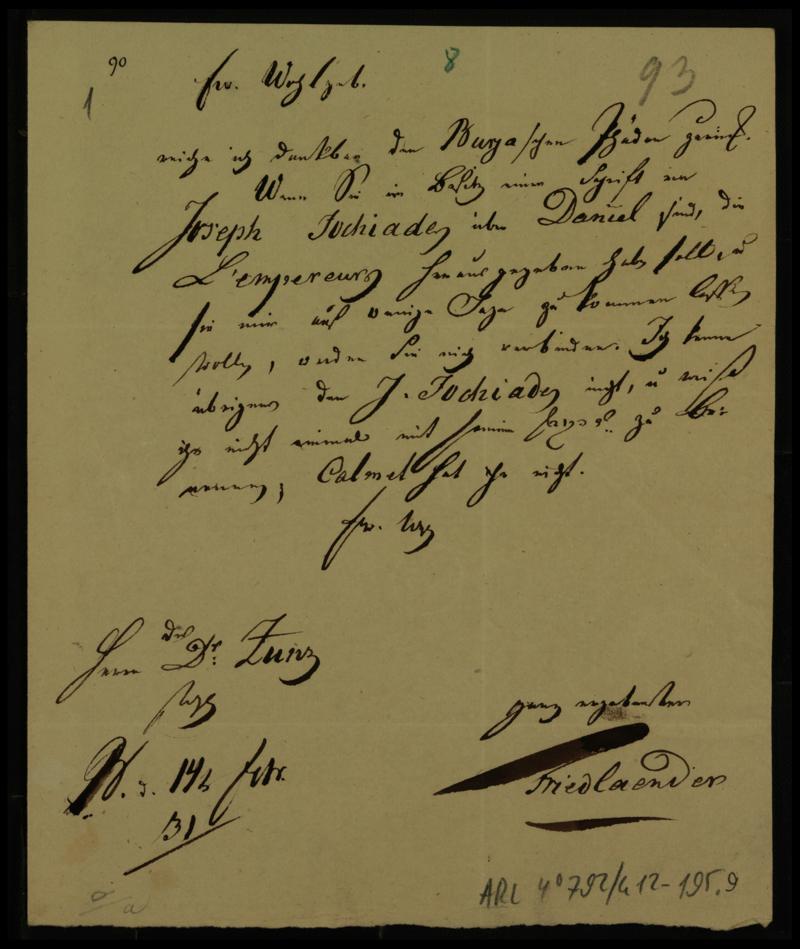 90
8
93
1
Ew. Wohlgeb.
reiche ich dankbar den Burja'schen Phädon zurück.
Wenn Sie im Besitz einer Schrift von
Joseph Jachiades über Daniel sind, die
L'empereur herausgegeben haben soll, u
sie mir auf wenige Tage zu kommen lassen
wollen, werden Sie mich verbinden. Ich kenne
übrigens den J. Jachiades nicht, u weiß
ihn nicht einmal mit seinem zu be-
nennen; Calmet hat ihn nicht.
Ew. Wgb
Herrn des Dr: Zunz
Wgb
ganz ergebenster
Friedlaender
B. d. 14t Febr.
31
ARC 4° 792/G12-195.9